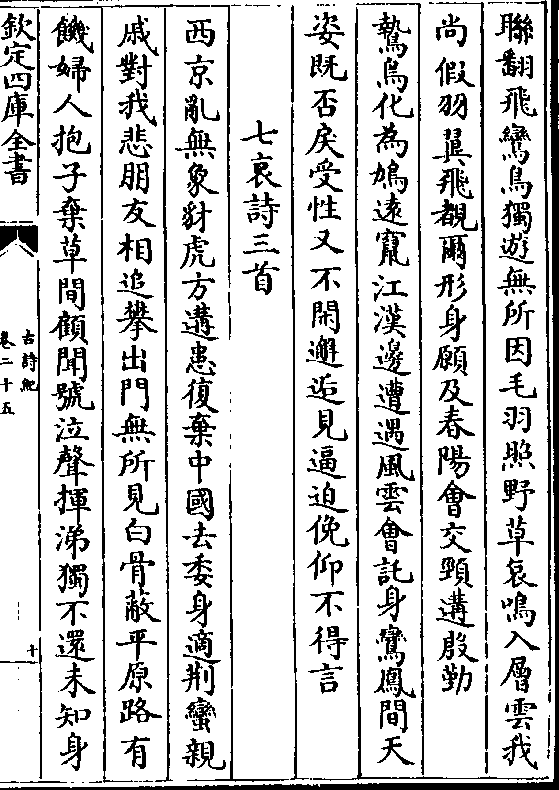 聯翻飛鸞鳥獨遊無所因毛羽照野草哀鳴入層雲我
尚假羽翼飛覩爾形身願及春陽會交頸遘殷勤
鷙鳥化為鳩遠竄江漢邊遭遇風雲會託身鸞鳳間天
姿既否戾受性又不閑邂逅見逼迫俛仰不得言
七哀詩三首
西京亂無象豺虎方遘患復棄中國去委身適荆蠻親
戚對我悲朋友相追攀出門無所見白骨蔽平原路有
饑婦人抱子棄草間顧聞號泣聲揮涕獨不還未知身
欽定四庫全書
古詩紀
卷二十五
十